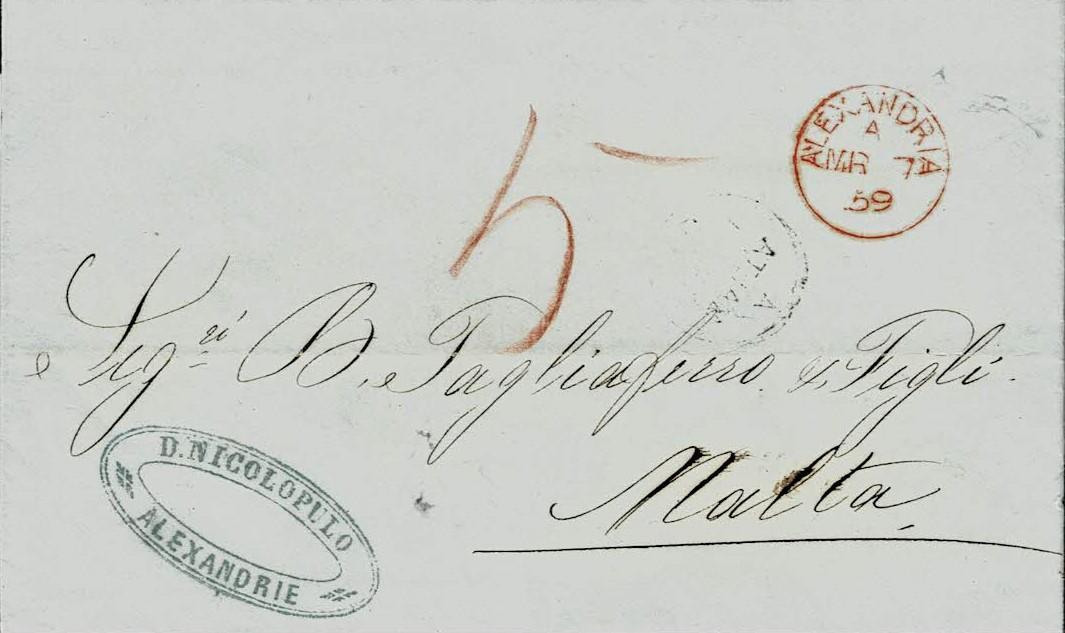 ALEXANDRIA
A
MR 7
59
5
Sigri B. Tagliaferro & Figli.
Malta
D. NICOLOPULO
ALEXANDRIE